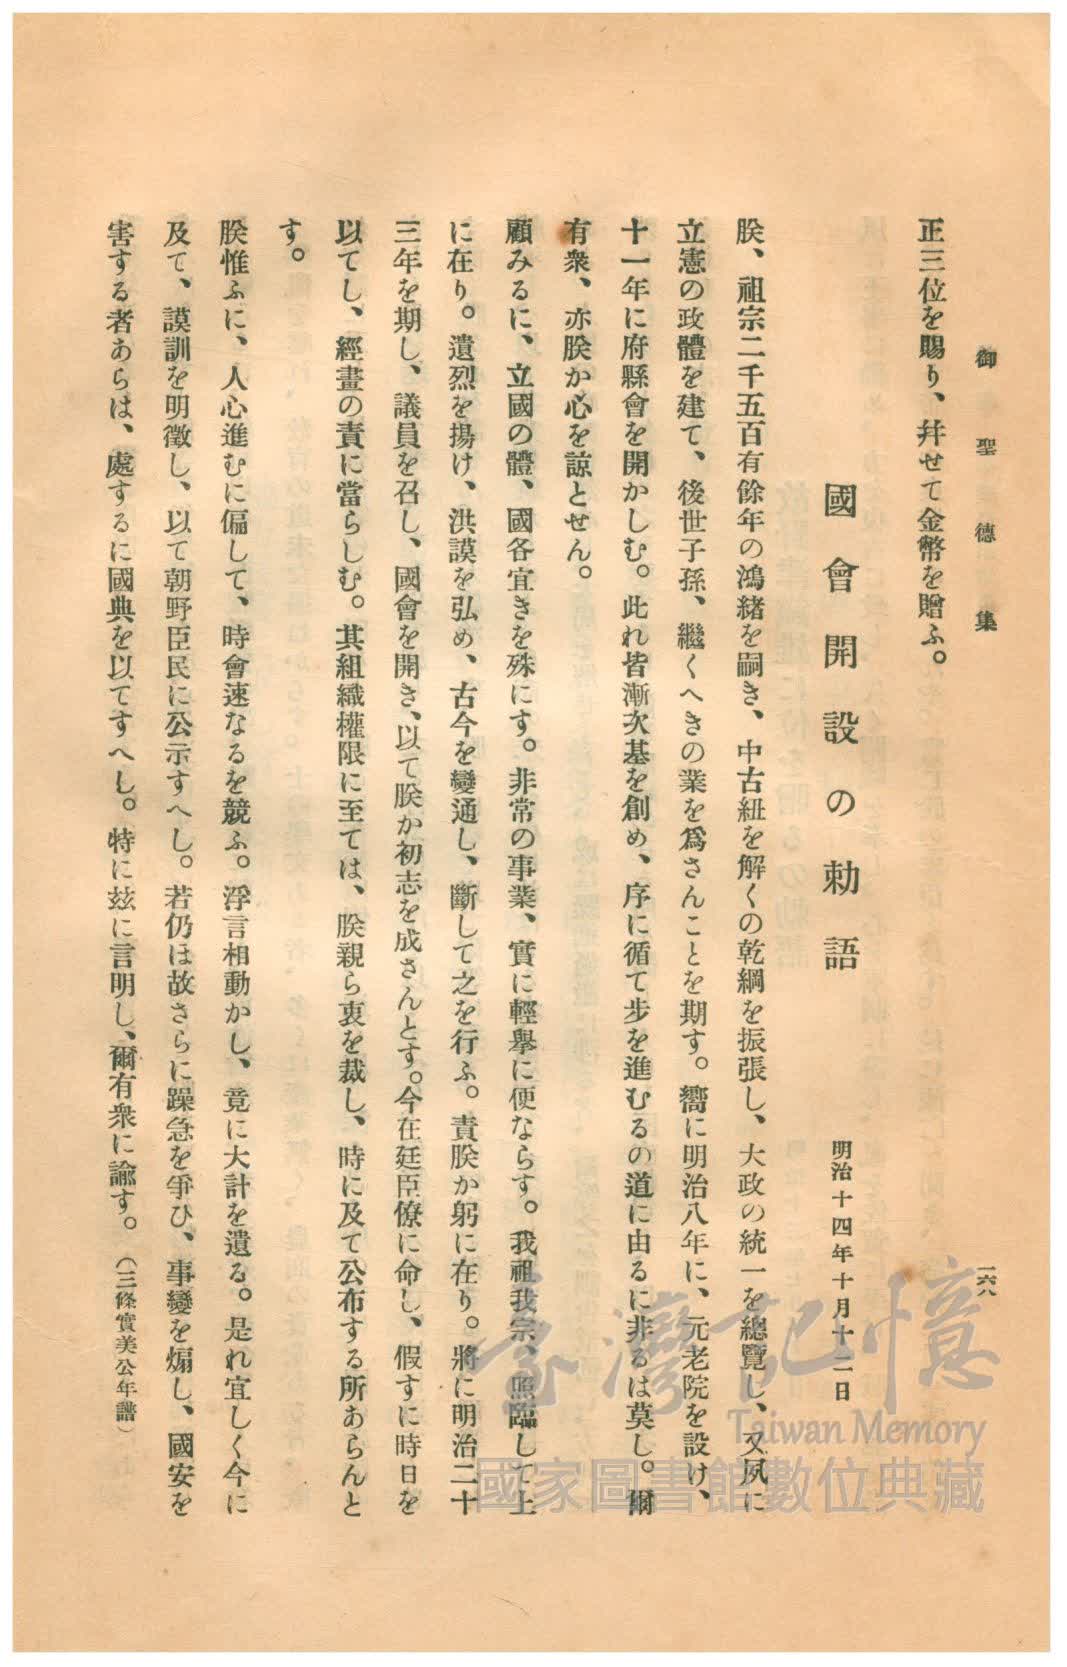 御聖德集
一六八
正三位を賜り、幷せて金幣を贈ふ。
國會開設の勅語
明治十四年十月十二日
朕、祖宗二千五百有餘年の鴻緒を嗣き、中古紐を解くの乾綱を振張し、大政の統一を總覽し、又夙に
立憲の政體を建て、後世子孫、繼くへきの業を爲さんことを期す。嚮に明治八年に、元老院を設け、
十一年に府縣會を開かしむ。此れ皆漸次基を創め、序に循て步を進むるの道に由るに非るは莫し。爾
有衆、亦朕か心を諒とせん。
顧みるに、立國の體、國各宜きを殊にす。非常の事業、實に輕擧に便ならす。我祖我宗、照臨して上
に在り。遺烈を揚け、洪謨を弘め、古今を變通し、斷して之を行ふ。責朕か躬に在り。將に明治二十
三年を期し、議員を召し、國會を開き、以て朕か初志を成さんとす。今在廷臣僚に命し、假すに時日を
以てし、經畫の責に當らしむ。其組織權限に至ては、朕親ら衷を裁し、時に及て公布する所あらんと
す。
朕惟ふに、人心進むに偏して、時會速なるを競ふ。浮言相動かし、竟に大計を遺る。是れ宜しく今に
及て、謨訓を明徵し、以て朝野臣民に公示すへし。若仍ほ故さらに躁急を爭ひ、事變を煽し、國安を
害する者あらは、處するに國典を以てすへし。特に玆に言明し、爾有衆に諭す。（三條實美公年譜）
臺灣記憶
Taiwan Memory
國家圖書館數位典藏